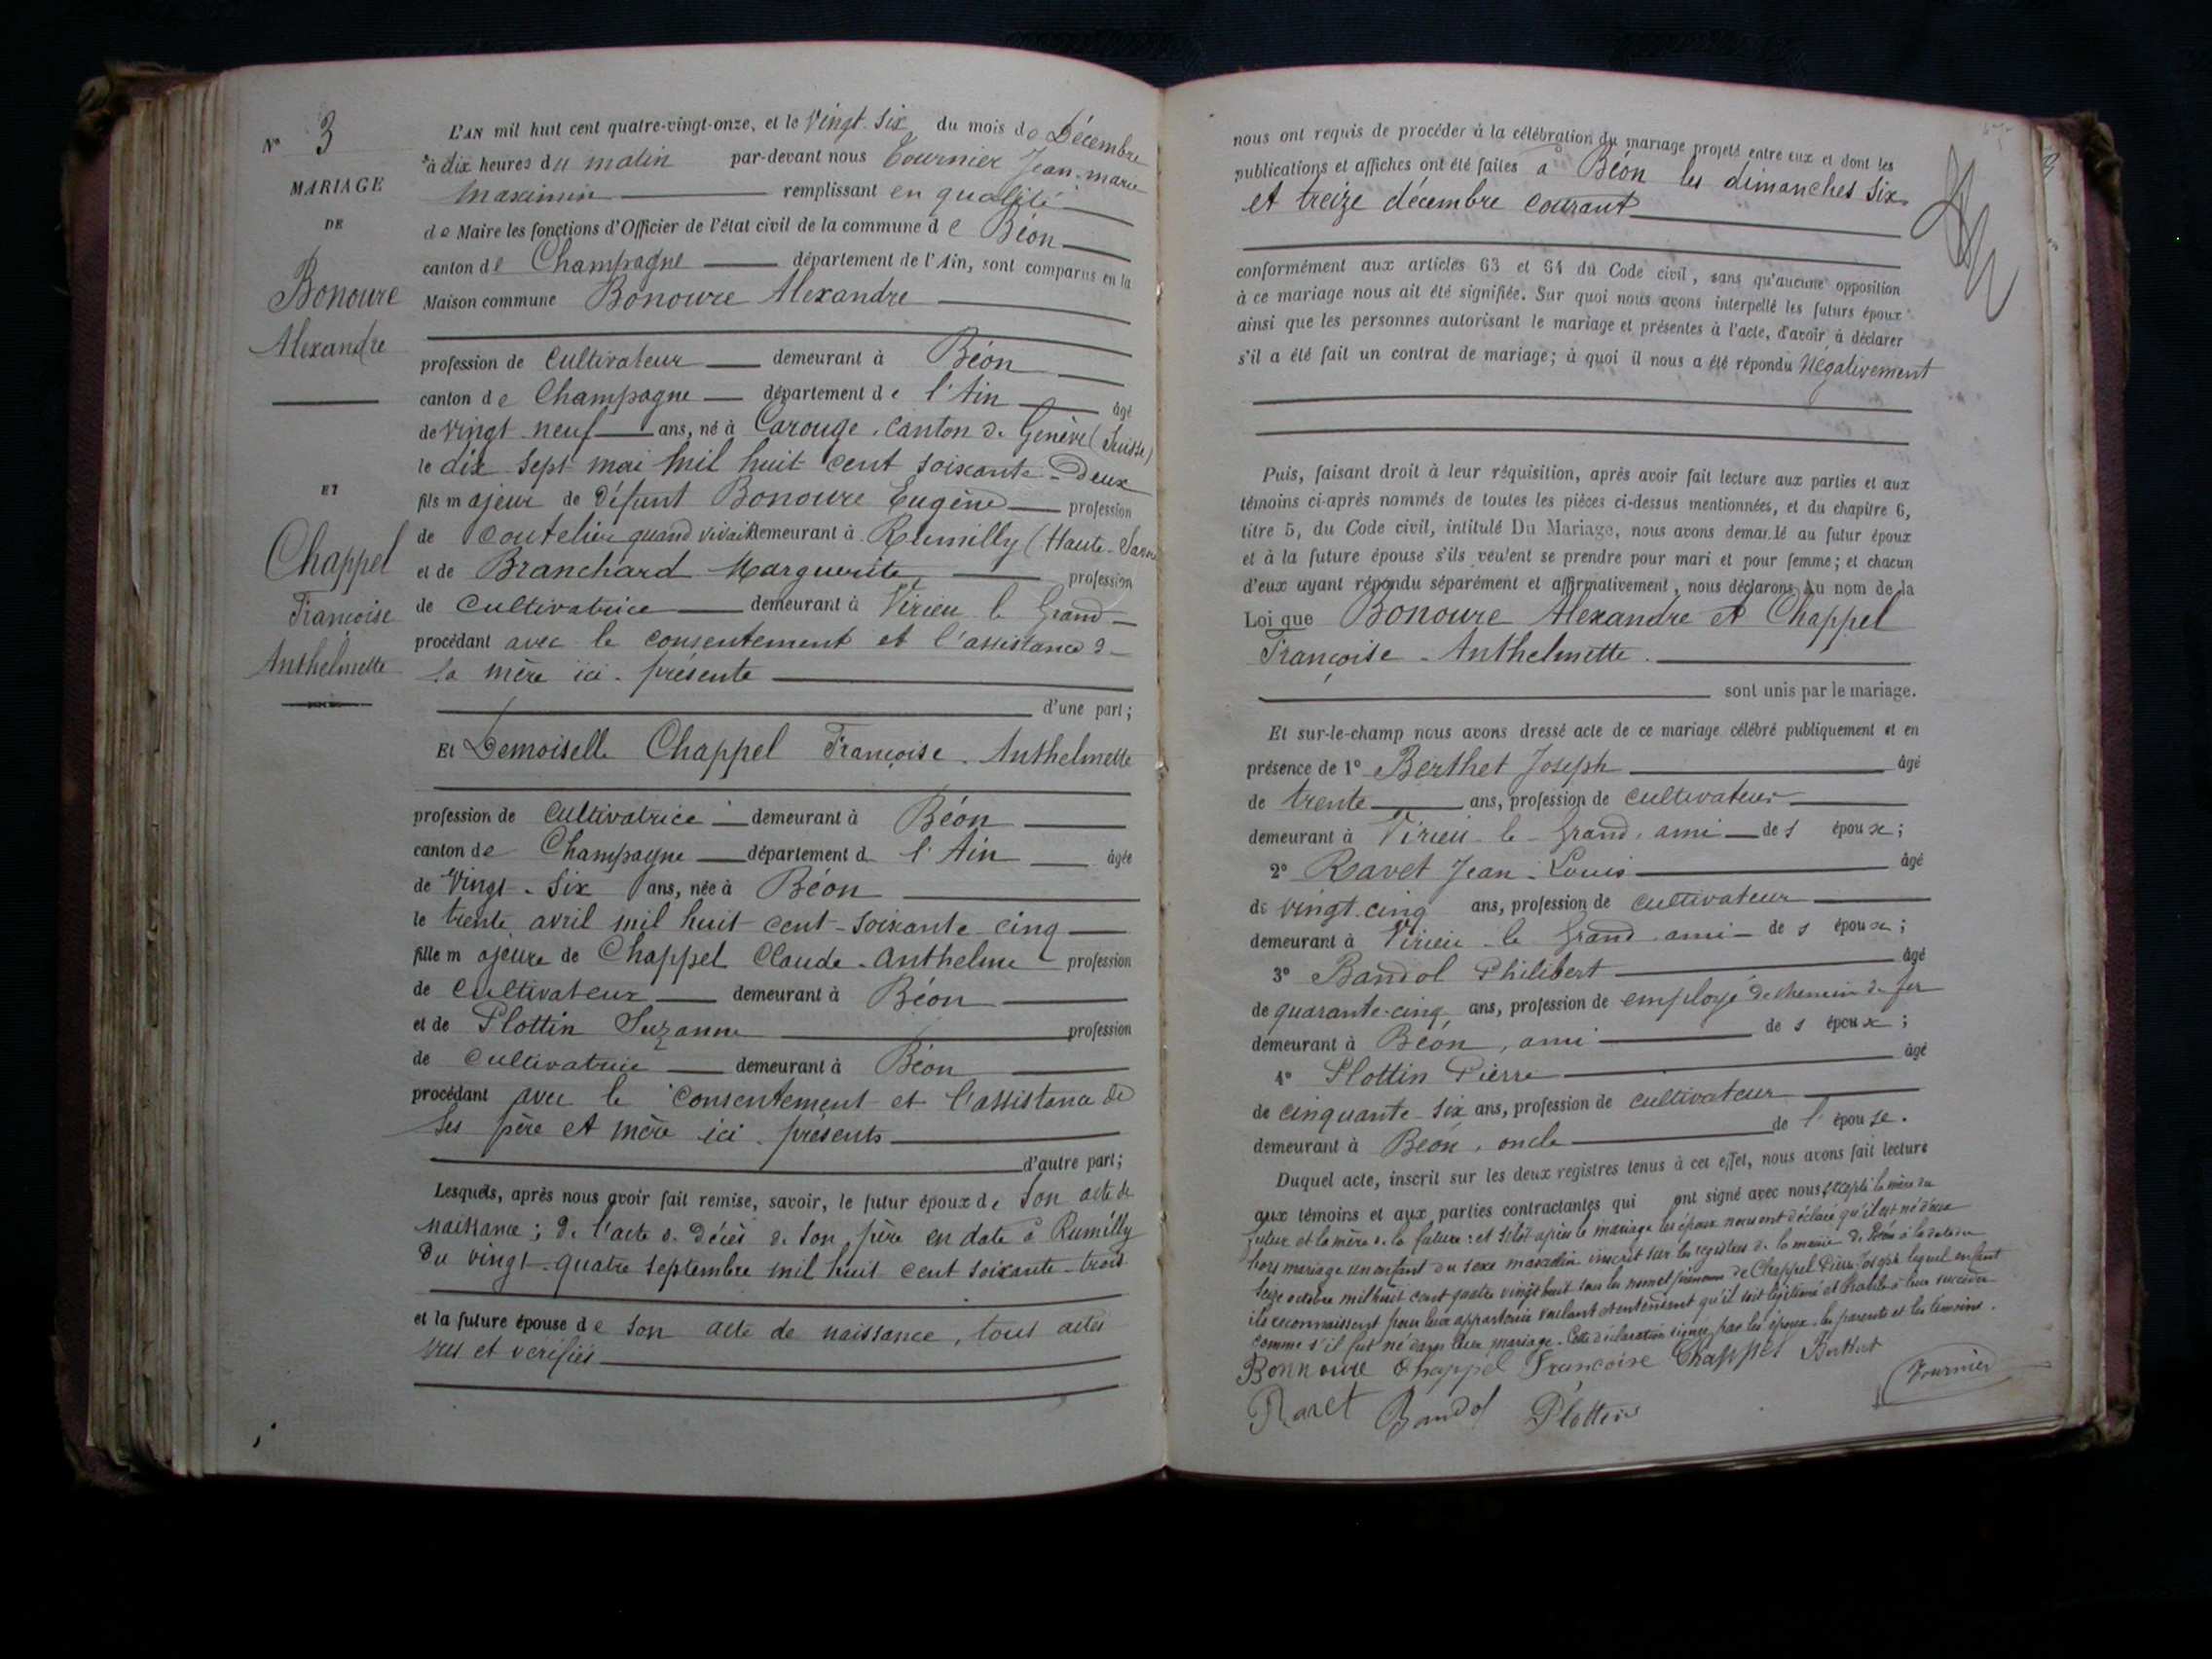 N° 3
MARIAGE
DE
Bonoure
Alexandre
ET
Chappel
Françoise
Anthelmette
L'AN mil huit cent quatre-vingt-onze, et le Vingt-Six du mois de Décembre
à dix heures du matin par-devant nous Tournier Jean-marie
Maximin remplissant en qualité
de Maire les fonctions d'Officier de l'état civil de la commune de Béon
canton de Champagne département de l'Ain, sont comparus en la
Maison commune Bonoure Alexandre
profession de Cultivateur demeurant à Béon
canton de Champagne département de l'Ain âgé
de Vingt-neuf ans, né à Carouge, Canton de Genève (Suisse)
le dix Sept mai Mil huit cent soixante-Deux
fils majeur de Défunt Bonoure Eugène profession
de Coutelier quand vivait demeurant à Rumilly (Haute-Savoie
et de Branchard Marguerite profession
de Cultivatrice demeurant à Virieu le Grand
procédant avec le consentement et l'assistance de
Sa mère ici présente
d'une part;
Et Demoiselle Chappel Françoise Anthelmette
profession de Cultivatrice demeurant à Béon
canton de Champagne département de l'Ain âgée
de Vingt-Six ans, née à Béon
le trente avril mil huit cent-soixante-cinq
fille majeure de Chappel Claude-Anthelme profession
de Cultivateur demeurant à Béon
et de Plottin Suzanne profession
de Cultivatrice demeurant à Béon
procédant avec le Consentement et l'assistance de
Ses père et mère ici présents
d'autre part;
Lesquels, après nous avoir fait remise, savoir, le futur époux de Son acte de
naissance; de l'acte de décès de son père en date à Rumilly
Du vingt-quatre Septembre mil huit cent soixante-trois
et la future épouse de son acte de naissance, tous actes
vus et vérifiés
nous ont requis de procéder à la célébration du mariage projeté entre eux et dont les
publications et affiches ont été faites à Béon les dimanches Six
et treize décembre courant
conformément aux articles 63 et 64 du Code civil, sans qu'aucune opposition
à ce mariage nous ait été signifiée. Sur quoi nous avons interpellé les futurs époux
ainsi que les personnes autorisant le mariage et présentes à l'acte, d'avoir à déclarer
s'il a été fait un contrat de mariage; à quoi il nous a été répondu Négativement
Puis, faisant droit à leur réquisition, après avoir fait lecture aux parties et aux
témoins ci-après nommés de toutes les pièces ci-dessus mentionnées, et du chapitre 6,
titre 5, du Code civil, intitulé Du Mariage, nous avons demandé au futur époux
et à la future épouse s'ils veulent se prendre pour mari et pour femme; et chacun
d'eux ayant répondu séparément et affirmativement, nous déclarons Au nom de la
Loi que Bonoure Alexandre et Chappel
Françoise-Anthelmette
sont unis par le mariage.
Et sur-le-champ nous avons dressé acte de ce mariage célébré publiquement et en
présence de 1° Berthet Joseph âgé
de trente ans, profession de Cultivateur
demeurant à Virieu-le-Grand, ami des époux;
2° Ravet Jean-Louis âgé
de vingt-cinq ans, profession de Cultivateur
demeurant à Virieu-le Grand ami des époux;
3° Bandol Philibert âgé
de quarante-cinq ans, profession de employé de chemin de fer
demeurant à Béon, ami des époux;
4° Plottin Pierre âgé
de cinquante-Six ans, profession de Cultivateur
demeurant à Béon, oncle de l'épouse.
Duquel acte, inscrit sur les deux registres tenus à cet effet, nous avons fait lecture
aux témoins et aux parties contractantes qui ont signé avec nous, excepté la mère du
futur et la mère de la future; et sitôt après le mariage les époux nous ont déclaré qu'il est né d'eux
hors mariage un enfant du sexe masculin inscrit sur les registres de la mairie de Béon à la date du
Seize octobre mil huit cent quatre vingt huit sous les nom et prénoms de Chappel Pierre Joseph lequel enfant
ils reconnaissent pour leur appartenir voulant et entendent qu'il soit légitimé et habile à leur succéder
comme s'il fut né dans leur mariage. Cette déclaration signée par les époux les parents et les témoins.
Bonnoure Chappel Françoise Chappel Berthet
Ravet Bandol Plottin
Tournier